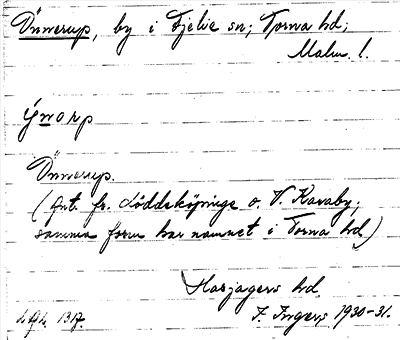 Önnerup, by i Fjelie sn; Torna hd;
Malm. l.
ýnarp
Önnerup.
(Ant. fr. Löddeköpinge o. V. Karaby;
samma form har namnet i Torna hd)
Harjagers hd.
I. Ingers 1930-31.